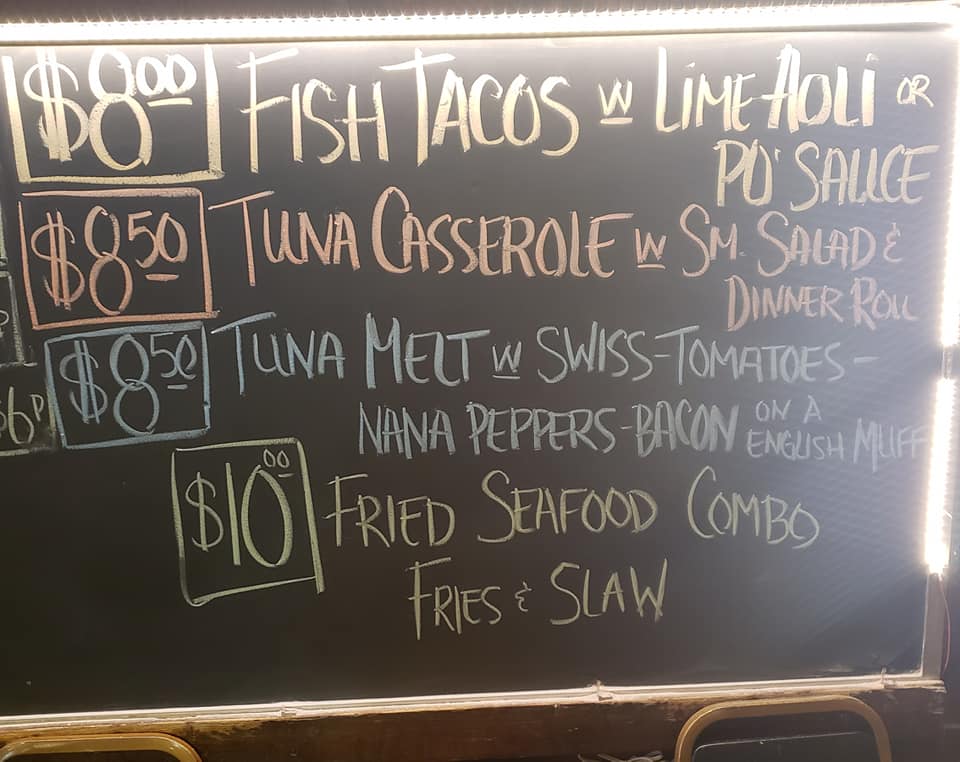 $8.00 FISH TACOS W LIME AOLI OR
PO' SAUCE
$8.50 TUNA CASSEROLE W SM. SALAD &
DINNER ROLL
$8.50 TUNA MELT W SWISS-TOMATOES-
NANA PEPPERS-BACON ON A
ENGLISH MUFF
$10.00 FRIED SEAFOOD COMBO
FRIES & SLAW